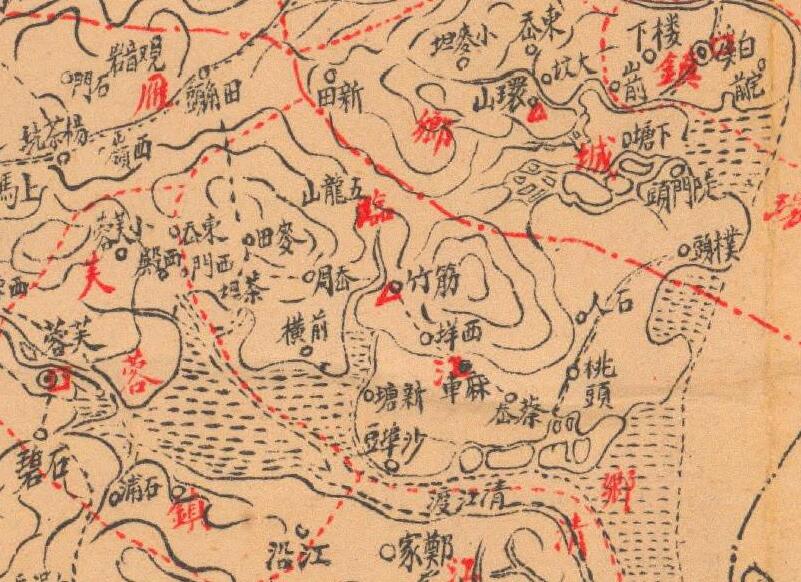 觀音岩
石門
雁
田頭
新田
小麥坦
東岙
大坑
環山
鄉
樓下
前山
鎮
白溪
城
下塘
陡門頭
楊茶坑
西嶺
上馬
五龍山
臨
小芙蓉
芙
東西門
西岙
麥田
茶坦
周岙
前橫
筋竹
西垟
江
麻車
蔡岙
石人
樸頭
碧
桃頭
芙蓉
蓉
石碧
新塘
沙埠豆
清江渡
鄉
清
石浦
鎮
江沿
鄭家
江